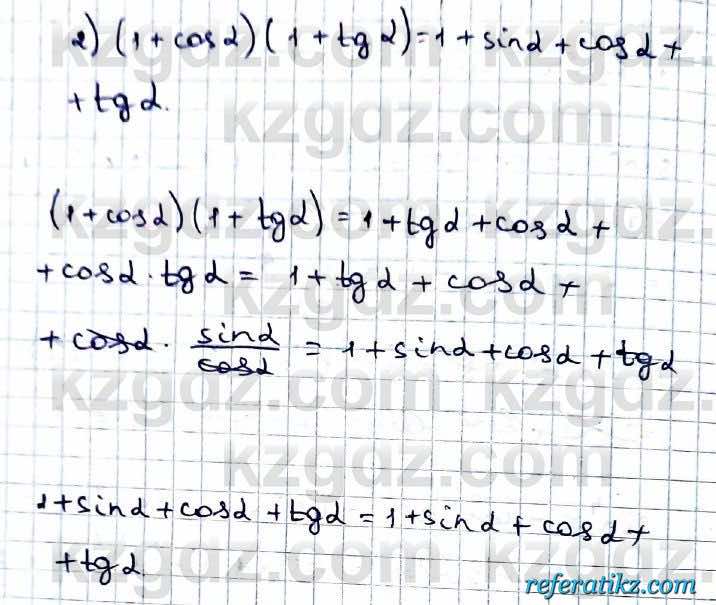 2) (1 + cos α)(1 + tg α) = 1 + sin α + cos α +
+ tg α.
(1 + cos α)(1 + tg α) = 1 + tg α + cos α +
+ cos α · tg α = 1 + tg α + cos α +
+ cos α · sin α / cos α = 1 + sin α + cos α + tg α
1 + sin α + cos α + tg α = 1 + sin α + cos α +
+ tg α.
kzgdz.com
referatikz.com